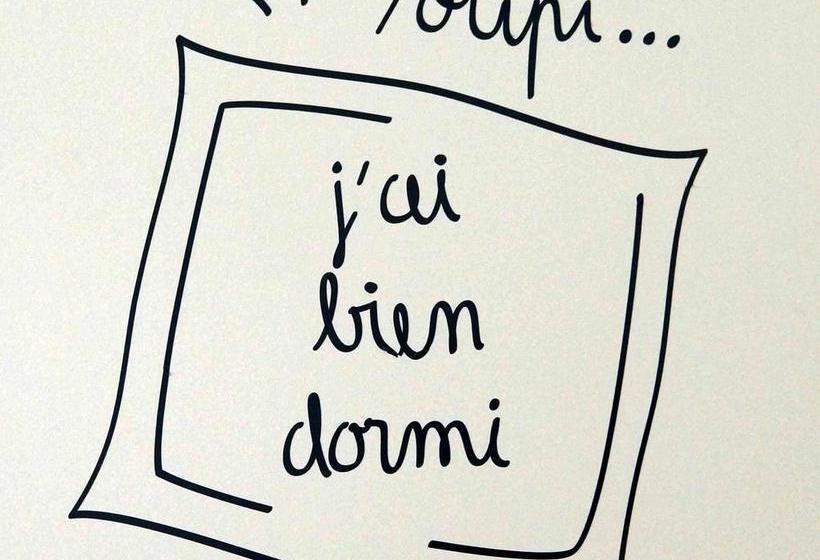 Youpi...
j'ai
bien
dormi